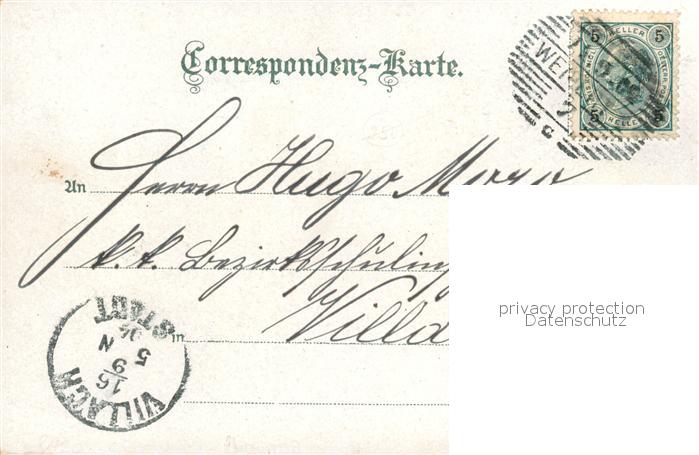 Correspondenz-Karte.
5 KELLER 5
WER
An Herrn Hugo Moro
k. k. Bezirksschulin
in Villa
VILLACH STADT
16
9
5 N
privacy protection
Datenschutz